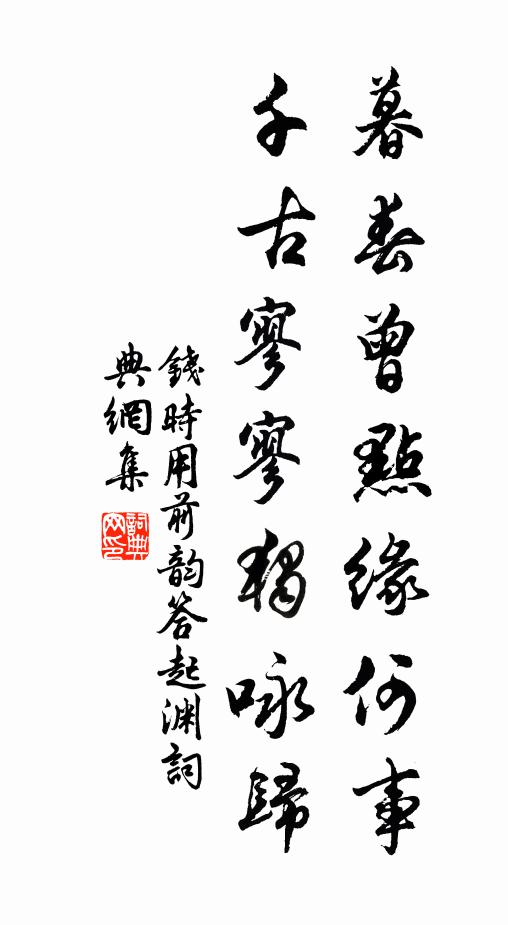 暮春曾點緣何事
千古寥寥獨咏歸
錢時用前韵答起渊詞
典網集
詞典
网印